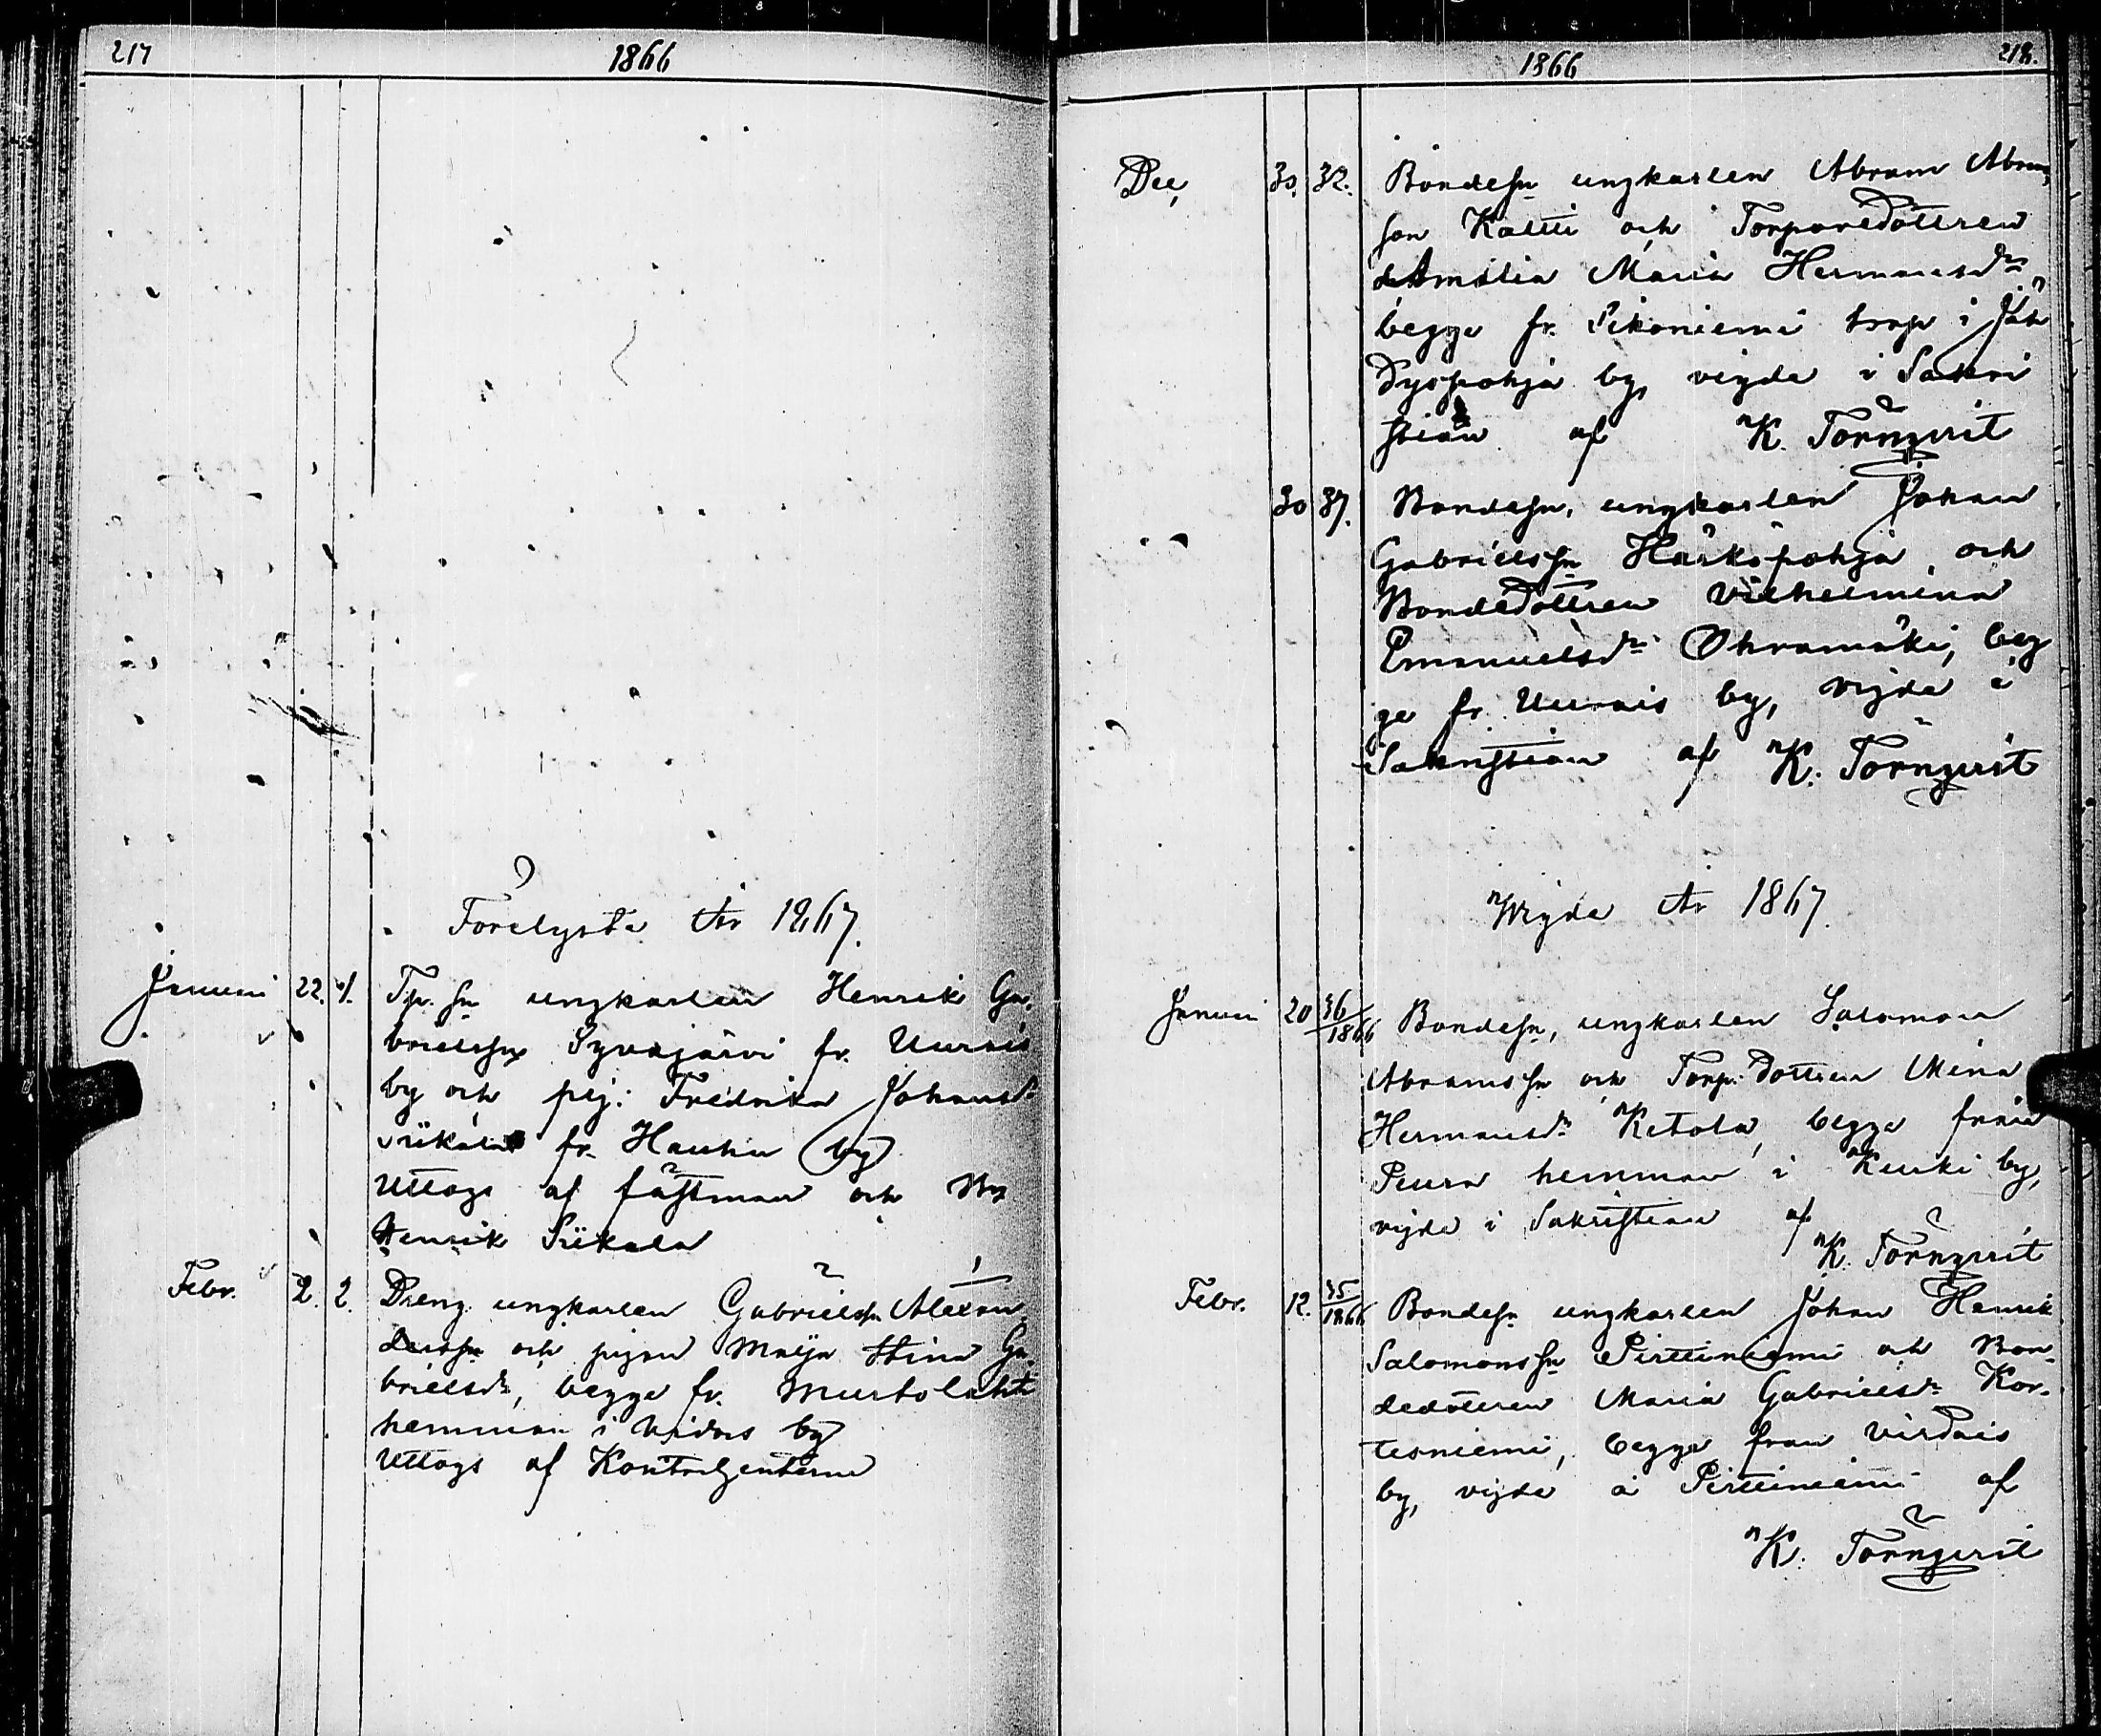 217 1866
Förelyste År 1867.
Januari 22. 1. Tp. sn ungkarlen Henrik Ga-
brielssn Syväjärvi fr. Uurais
by och pig: Fredrika Johansdr
Siikala fr. Hauhu by
Uttogs af fästman och Br
Henrik Siikala
Febr. 2. 2. Dreng ungkarlen Gabrielssn Alexan-
derssn och pigan Maija Stina Ga-
brielsdr, begge fr. Murtolahti
hemman i Virdois by
Uttogs af Kontrahenterne
1866 218.
Dec, 30. 32. Bondesn ungkarlen Abram Abram-
son Katti och Torparedottren
Amalia Maria Hermansdr,
begge fr. Pikoniemi torp i Jäh
dyspohja by, vigde i Sakri
stian af K. Törnqvist
30 37. Bondesn, ungkarlen Johan
Gabrielssn Härköpohja och
Bondedottren Vilhelmina
Emanuelsdr Ohramäki, beg
ge fr. Uurais by, vigde i
Sakristian af K. Törnqvist
Wigde År 1867.
Januari 20 36/1866 Bondesn, ungkarlen Salomon
Abramssn och Torp. dottren Mina
Hermansdr Ketola, begge från
Peura hemman i Keuki by,
vigde i Sakristian af
K. Törnqvist
Febr. 12. 35/1866 Bondesn ungkarlen Johan Henrik
Salomonssn Pirttiniemi och Bon-
dedottren Maria Gabrielsdr Kor-
tesniemi, begge från Virdois
by, vigde å Pirttiniemi af
K. Törnqvist